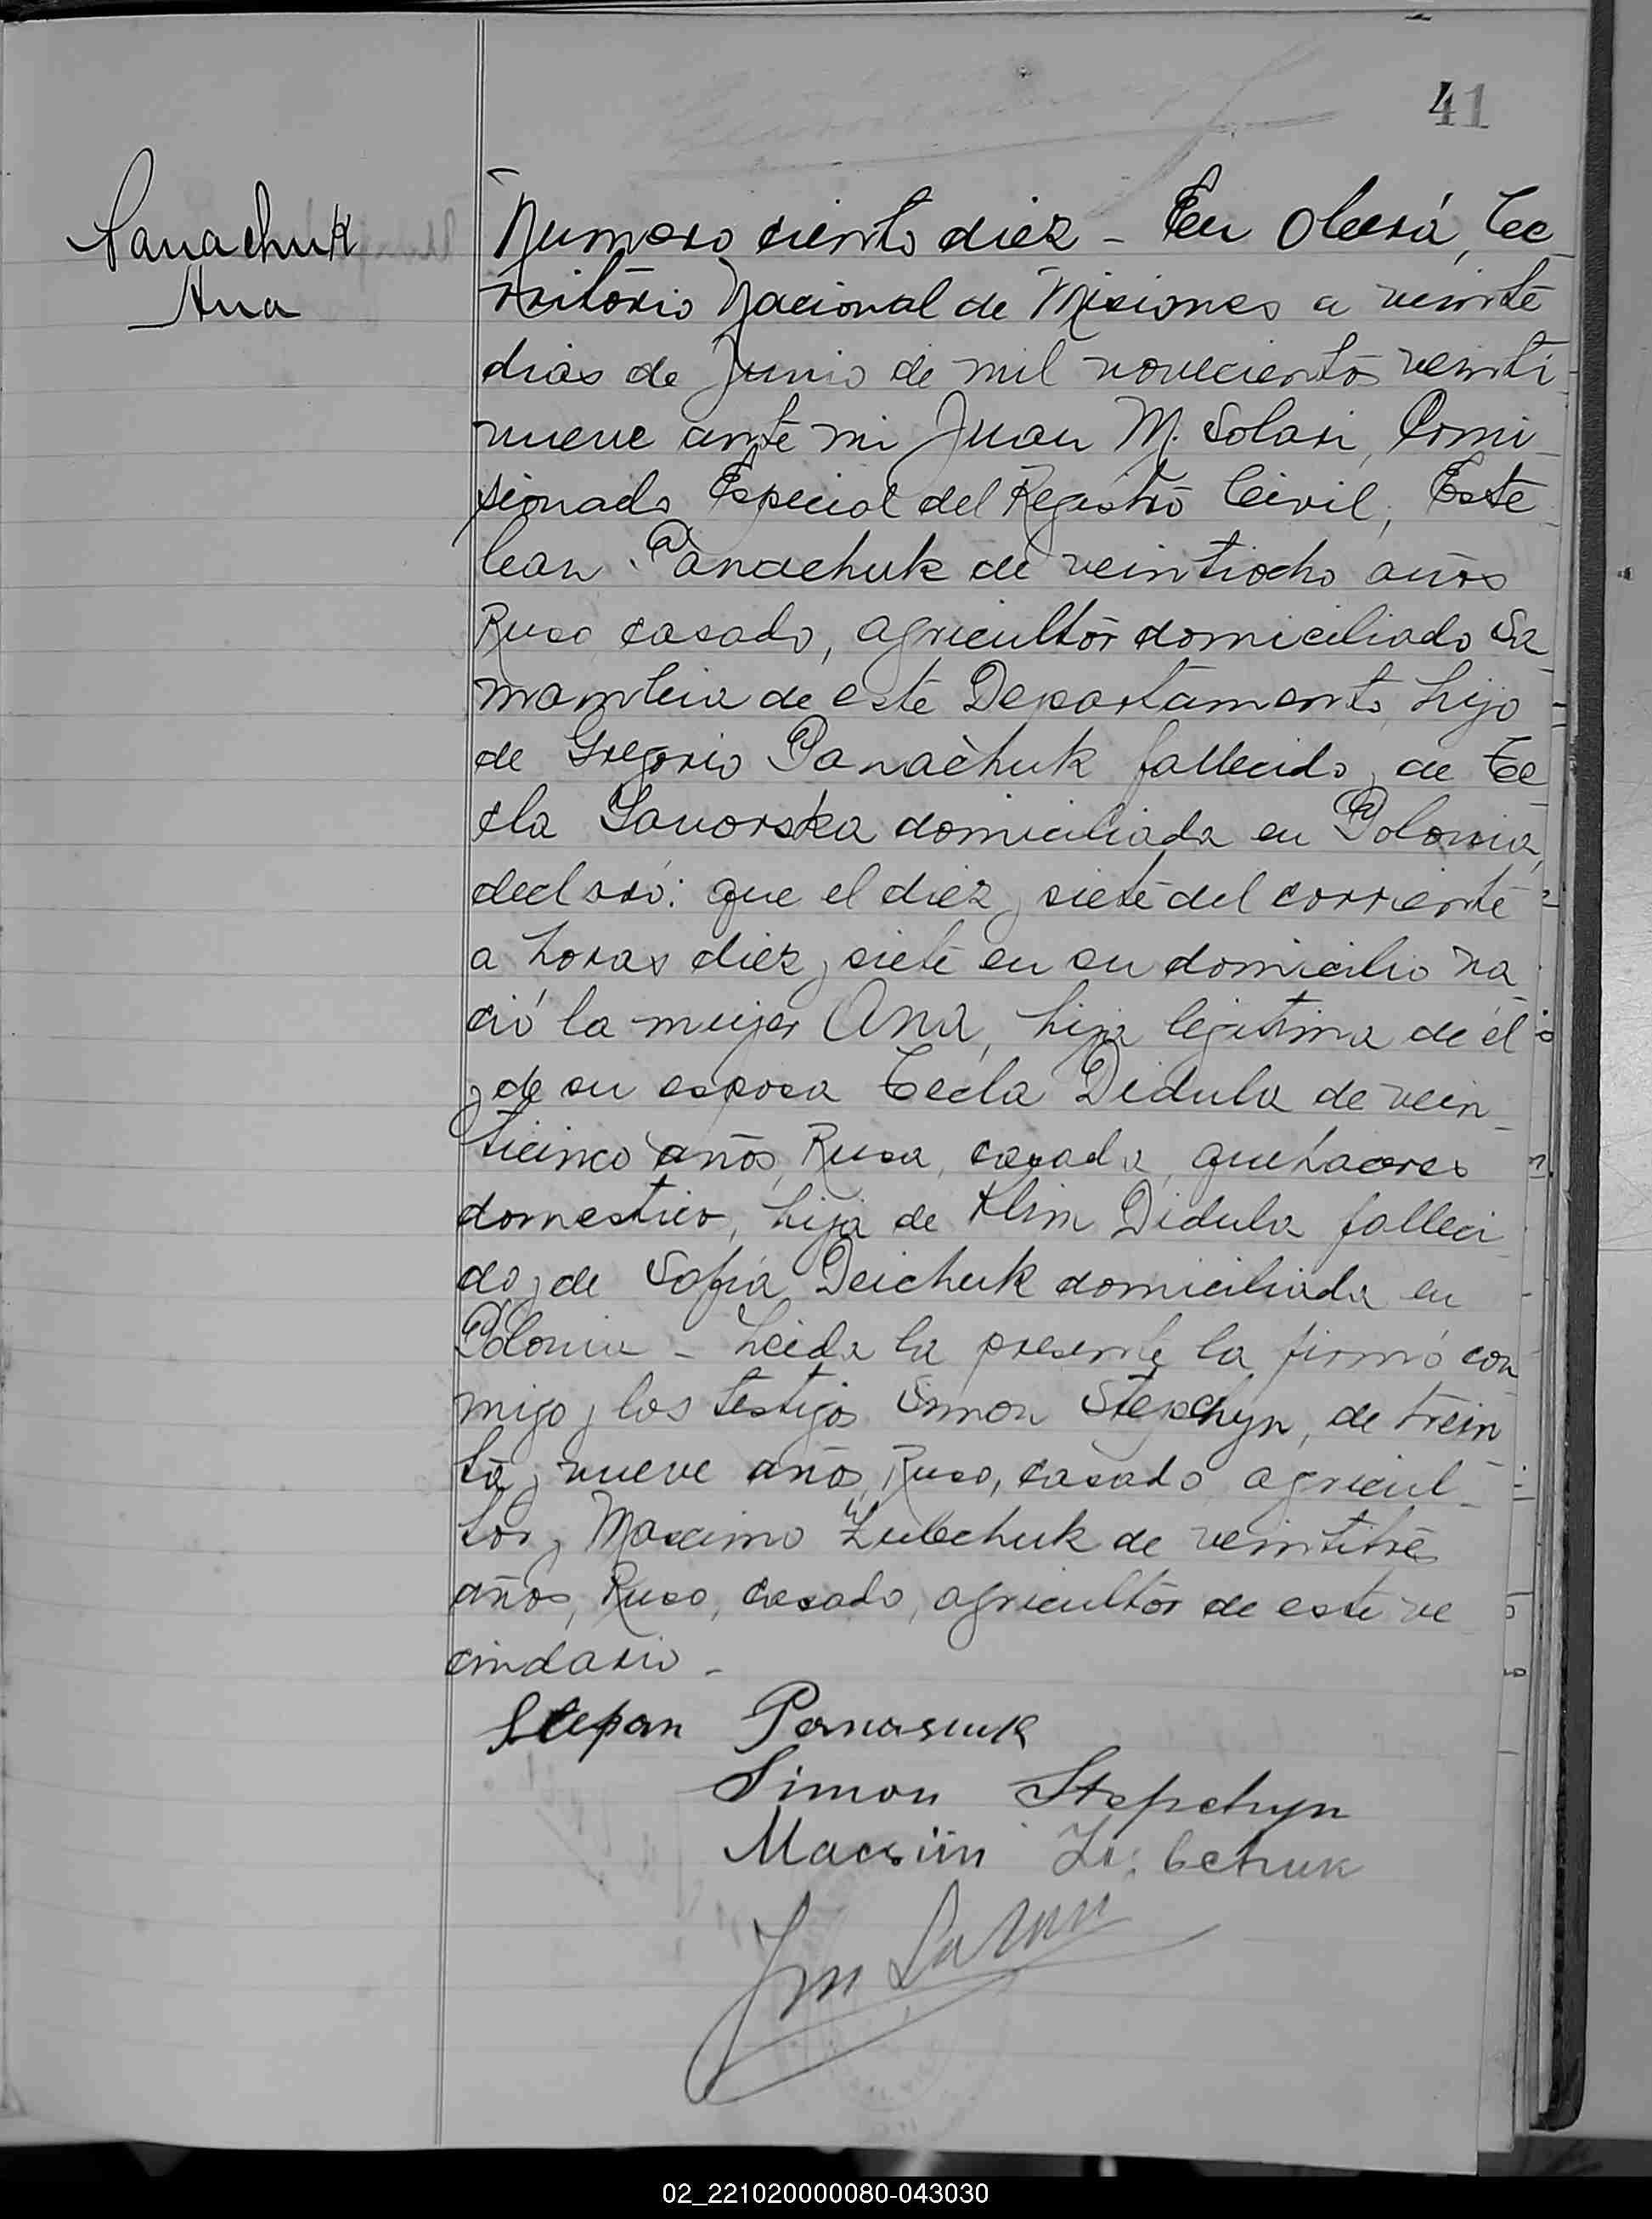 41
Panachuk
Ana
Numero ciento diez - En Oberá, Te-
rritorio Nacional de Misiones a veinte
dias de Junio de mil novecientos veinti-
nueve ante mi Juan M. Solari, Comi-
sionado Especial del Registro Civil, Este-
ban Panachuk de veintiocho años
Ruso casado, agricultor domiciliado Sa-
mambia de este Departamento hijo
de Gregorio Panachuk fallecido y de Te-
cla Yavorska domiciliada en Polonia,
declaró: que el diez y siete del corriente
a horas diez y siete en su domicilio na
ció la mujer Ana, hija legitima de él
y de su esposa Tecla Didula de vein-
ticinco años, Rusa, casada, quehaceres
domestico, hija de Klim Didula falleci
do y de Sofia Deichuk domiciliada en
Polonia - Leida la presente la firmó con
migo y los testigos Simon Stepchyn, de trein
ta y nueve años, Ruso, casado agricul-
tor y Maximo Zubchuk de veintitres
años, Ruso, casado, agricultor de este ve
cindario -
Stepan Panasiuk
Simon Stepchyn
Macsiin
02_221020000080-043030